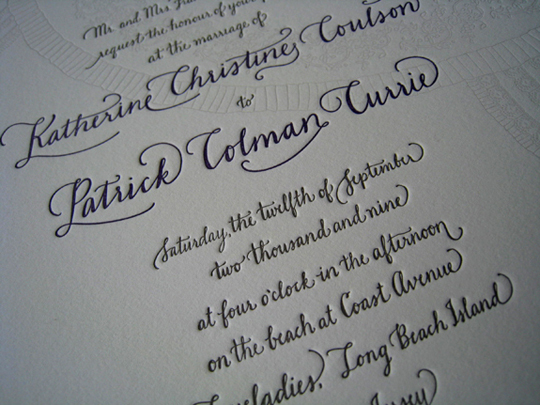 Mr. and Mrs.
request the honour of your
at the marriage of
Katherine Christine Coulson
to
Patrick Colman Currie
Saturday, the twelfth of September
two thousand and nine
at four o'clock in the afternoon
on the beach at Coast Avenue
Long Beach Island